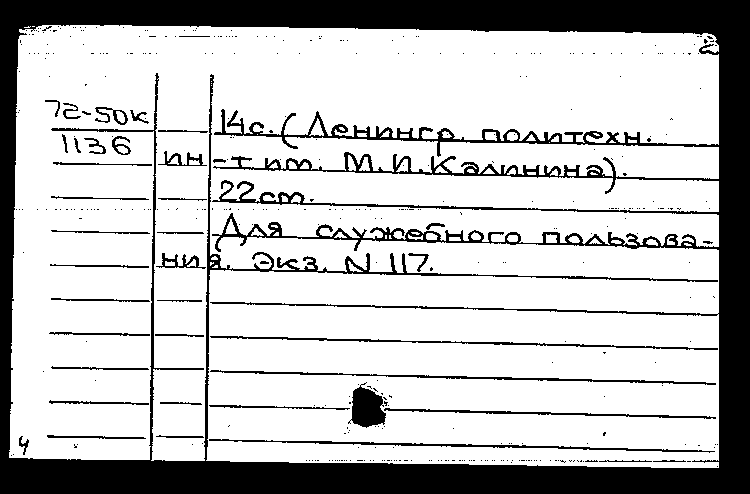 2
72-50к
14с. (Ленингр. политехн.
1136
ин-т им. М.И.Калинина).
22 cm.
Для служебного пользова-
ния. Экз. N 117.
4